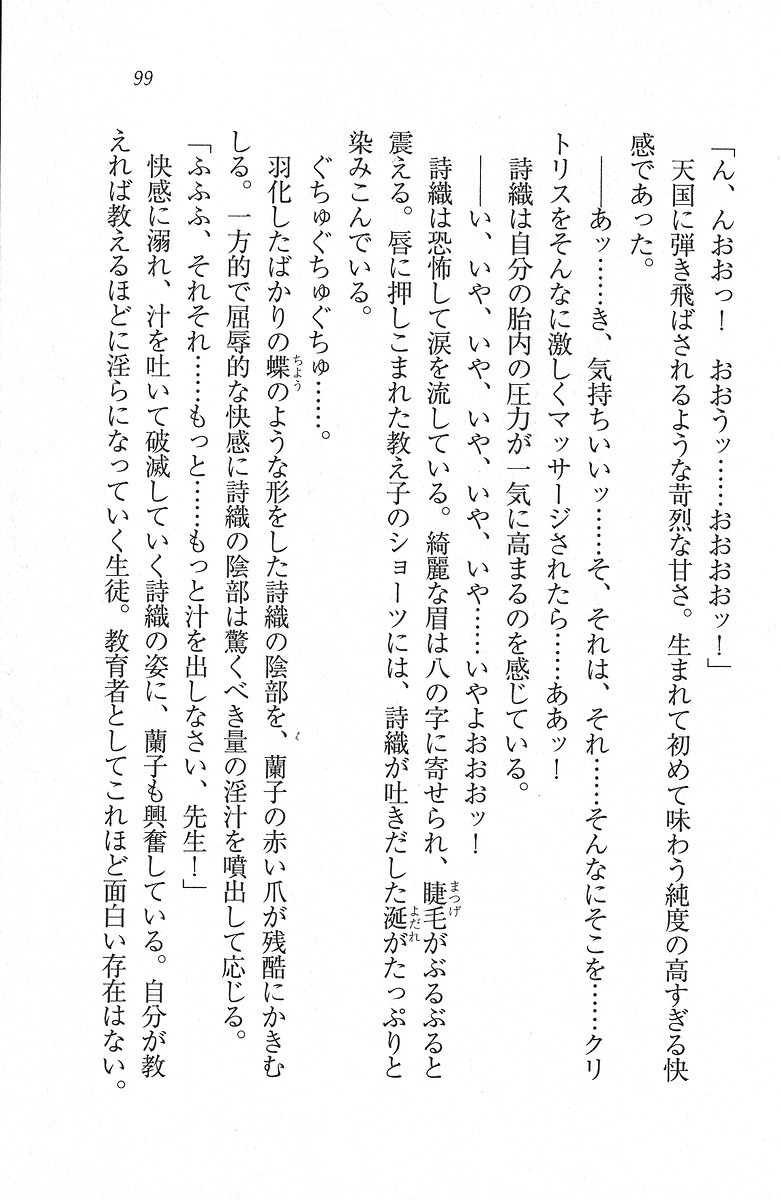 99
「ん、んおおっ！　おおうッ……おおおおッ！」
　天国に弾き飛ばされるような苛烈な甘さ。生まれて初めて味わう純度の高すぎる快
感であった。
　――あッ……き、気持ちいいッ……そ、それは、それ……そんなにそこを……クリ
トリスをそんなに激しくマッサージされたら……ああッ！
　詩織は自分の胎内の圧力が一気に高まるのを感じている。
　――い、いや、いや、いや、いや、いや……いやよおおおッ！
　詩織は恐怖して涙を流している。綺麗な眉は八の字に寄せられ、睫毛がぶるぶると
まつげ
震える。唇に押しこまれた教え子のショーツには、詩織が吐きだした涎がたっぷりと
よだれ
染みこんでいる。
　ぐちゅぐちゅぐちゅ……。
　羽化したばかりの蝶のような形をした詩織の陰部を、蘭子の赤い爪が残酷にかきむ
ちょう
しる。一方的で屈辱的な快感に詩織の陰部は驚くべき量の淫汁を噴出して応じる。
「ふふふ、それそれ……もっと……もっと汁を出しなさい、先生！」
　快感に溺れ、汁を吐いて破滅していく詩織の姿に、蘭子も興奮している。自分が教
えれば教えるほどに淫らになっていく生徒。教育者としてこれほど面白い存在はない。